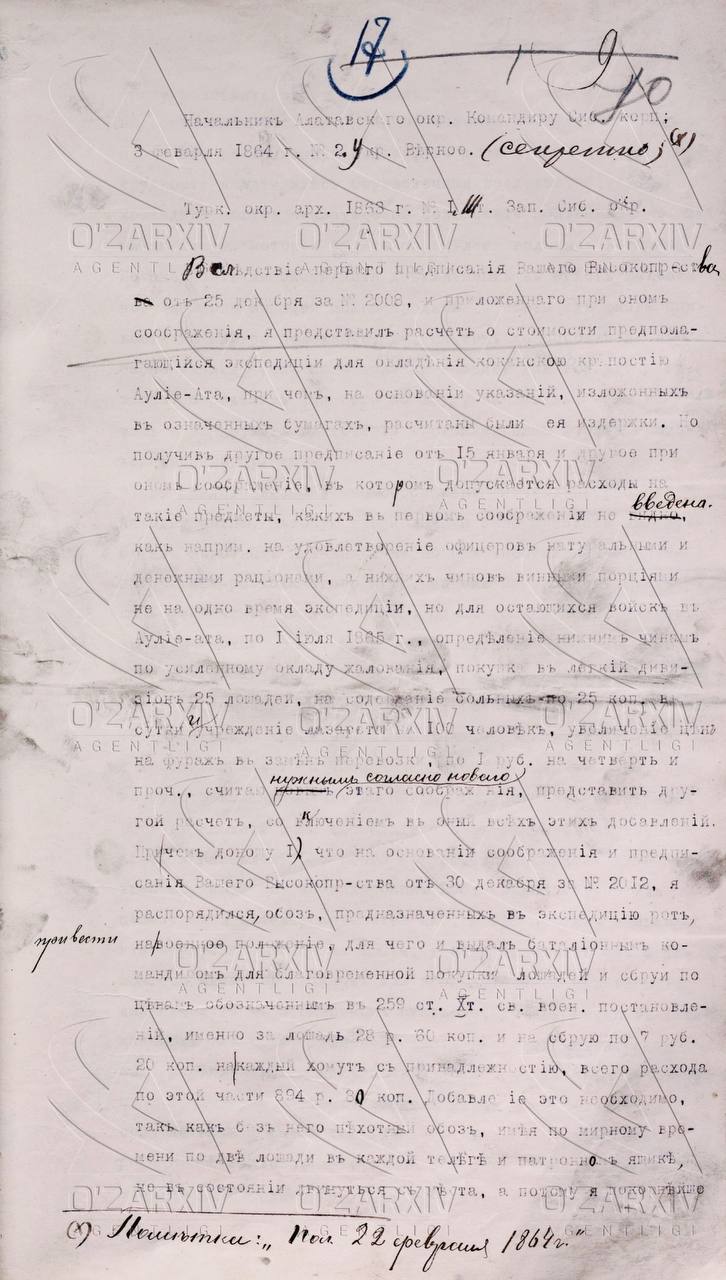 17
9
10
Начальникъ Алатавскаго окр. Командиру Сиб. корп;
3 февраля 1864 г. № 24 укр. Вѣрное. (секретно) (х)
Турк. окр. арх. 1863 г. № I, III т. Зап. Сиб. окр.
Вслѣдствіе перваго предписанія Вашего Высокопрества
отъ 25 декабря за № 2008, и приложеннаго при ономъ
соображенія, я представилъ расчетъ о стоимости предпола-
гающійся экспедиціи для овладѣнія коканскою крѣпостію
Ауліе-Ата, при чемъ, на основаніи указаній, изложенныхъ
въ означенныхъ бумагахъ, расчитаны были ея издержки. Но
получивъ другое предписаніе отъ 15 января и другое при
ономъ соображеніе, въ которомъ допускается расходы на
такіе предметы, какихъ въ первомъ соображеніи не введена.
какъ наприм. на удовлетвореніе офицеровъ натуральными и
денежными раціонами, а нижнихъ чиновъ винными порціями
не на одно время экспедиціи, но для остающихся войскъ въ
Ауліе-ата, по I іюля 1865 г., опредѣленіе нижнимъ чинамъ
по усиленному окладу жалованія, покупка въ легкій диви-
зіонъ 25 лошадей, на содержаніе больныхъ по 25 коп. въ
сутки и учрежденіе лазарета 100 человѣкъ, увеличеніе цѣнъ
на фуражъ въ замѣнъ перевозки, по I руб. на четверть и
проч., считаю нужнымъ согласно новаго этаго соображенія, представить дру-
гой расчетъ, со включеніемъ въ оный всѣхъ этихъ добавленій.
Причемъ доношу I) что на основаніи соображенія и предпи-
санія Вашего Высокопр-ства отъ 30 декабря за № 2012, я
распорядился, обозъ, предназначенныхъ въ экспедицію ротъ,
привести на военное положеніе, для чего и выдалъ баталіоннымъ ко-
мандирамъ для благовременной покупки лошадей и сбруи по
цѣнамъ обозначеннымъ въ 259 ст. Хт. св. воен. постановле-
ній, именно за лошадь 28 р. 60 коп. и на сбрую по 7 руб.
20 коп. на каждый хомутъ съ принадлежностію, всего расхода
по этой части 894 р. 80 коп. Добавленіе это необходимо,
такъ какъ безъ него пѣхотный обозъ, имѣя по мирному вре-
мени по двѣ лошади въ каждой телѣгѣ и патронномъ ящикѣ,
не въ состояніи двинуться съ мѣста, а потому я покорнѣйше
(х) Помѣтка: „Пол. 22 февраля 1864 г."
O'ZARXIV
AGENTLIGI